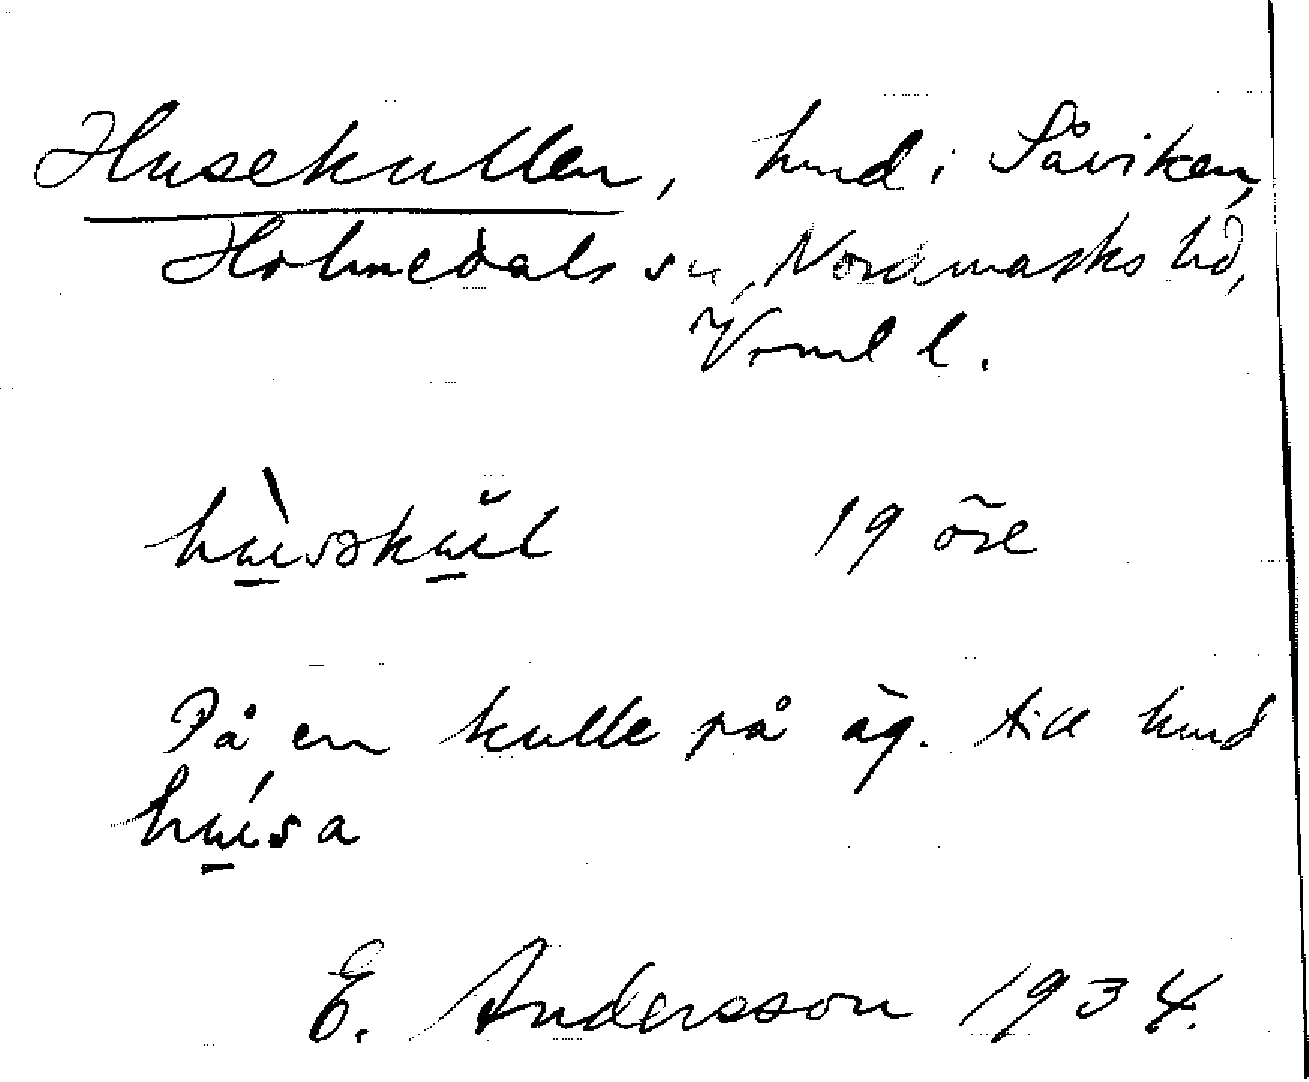 Husekullen, hmd i Såviken,
Holmedals sn, Nordmarks hd,
Vrml l.
hùsəkŭl 19 öre
På en kulle på äg. till hmd
húsa
E. Andersson 1934.